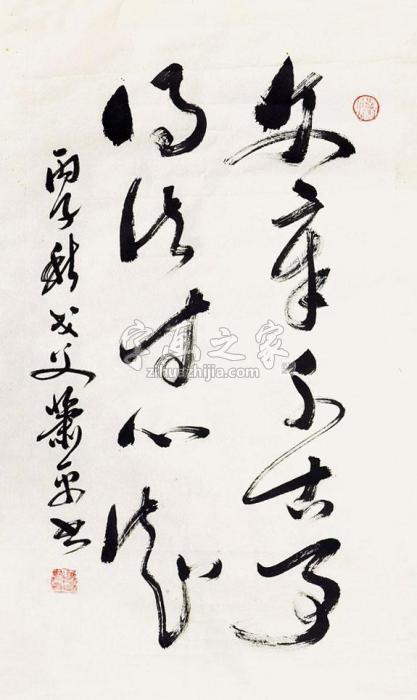 文章千古事
得失寸心知
丙子秋戈父萧平书
字画之家
zihuazhijia.com